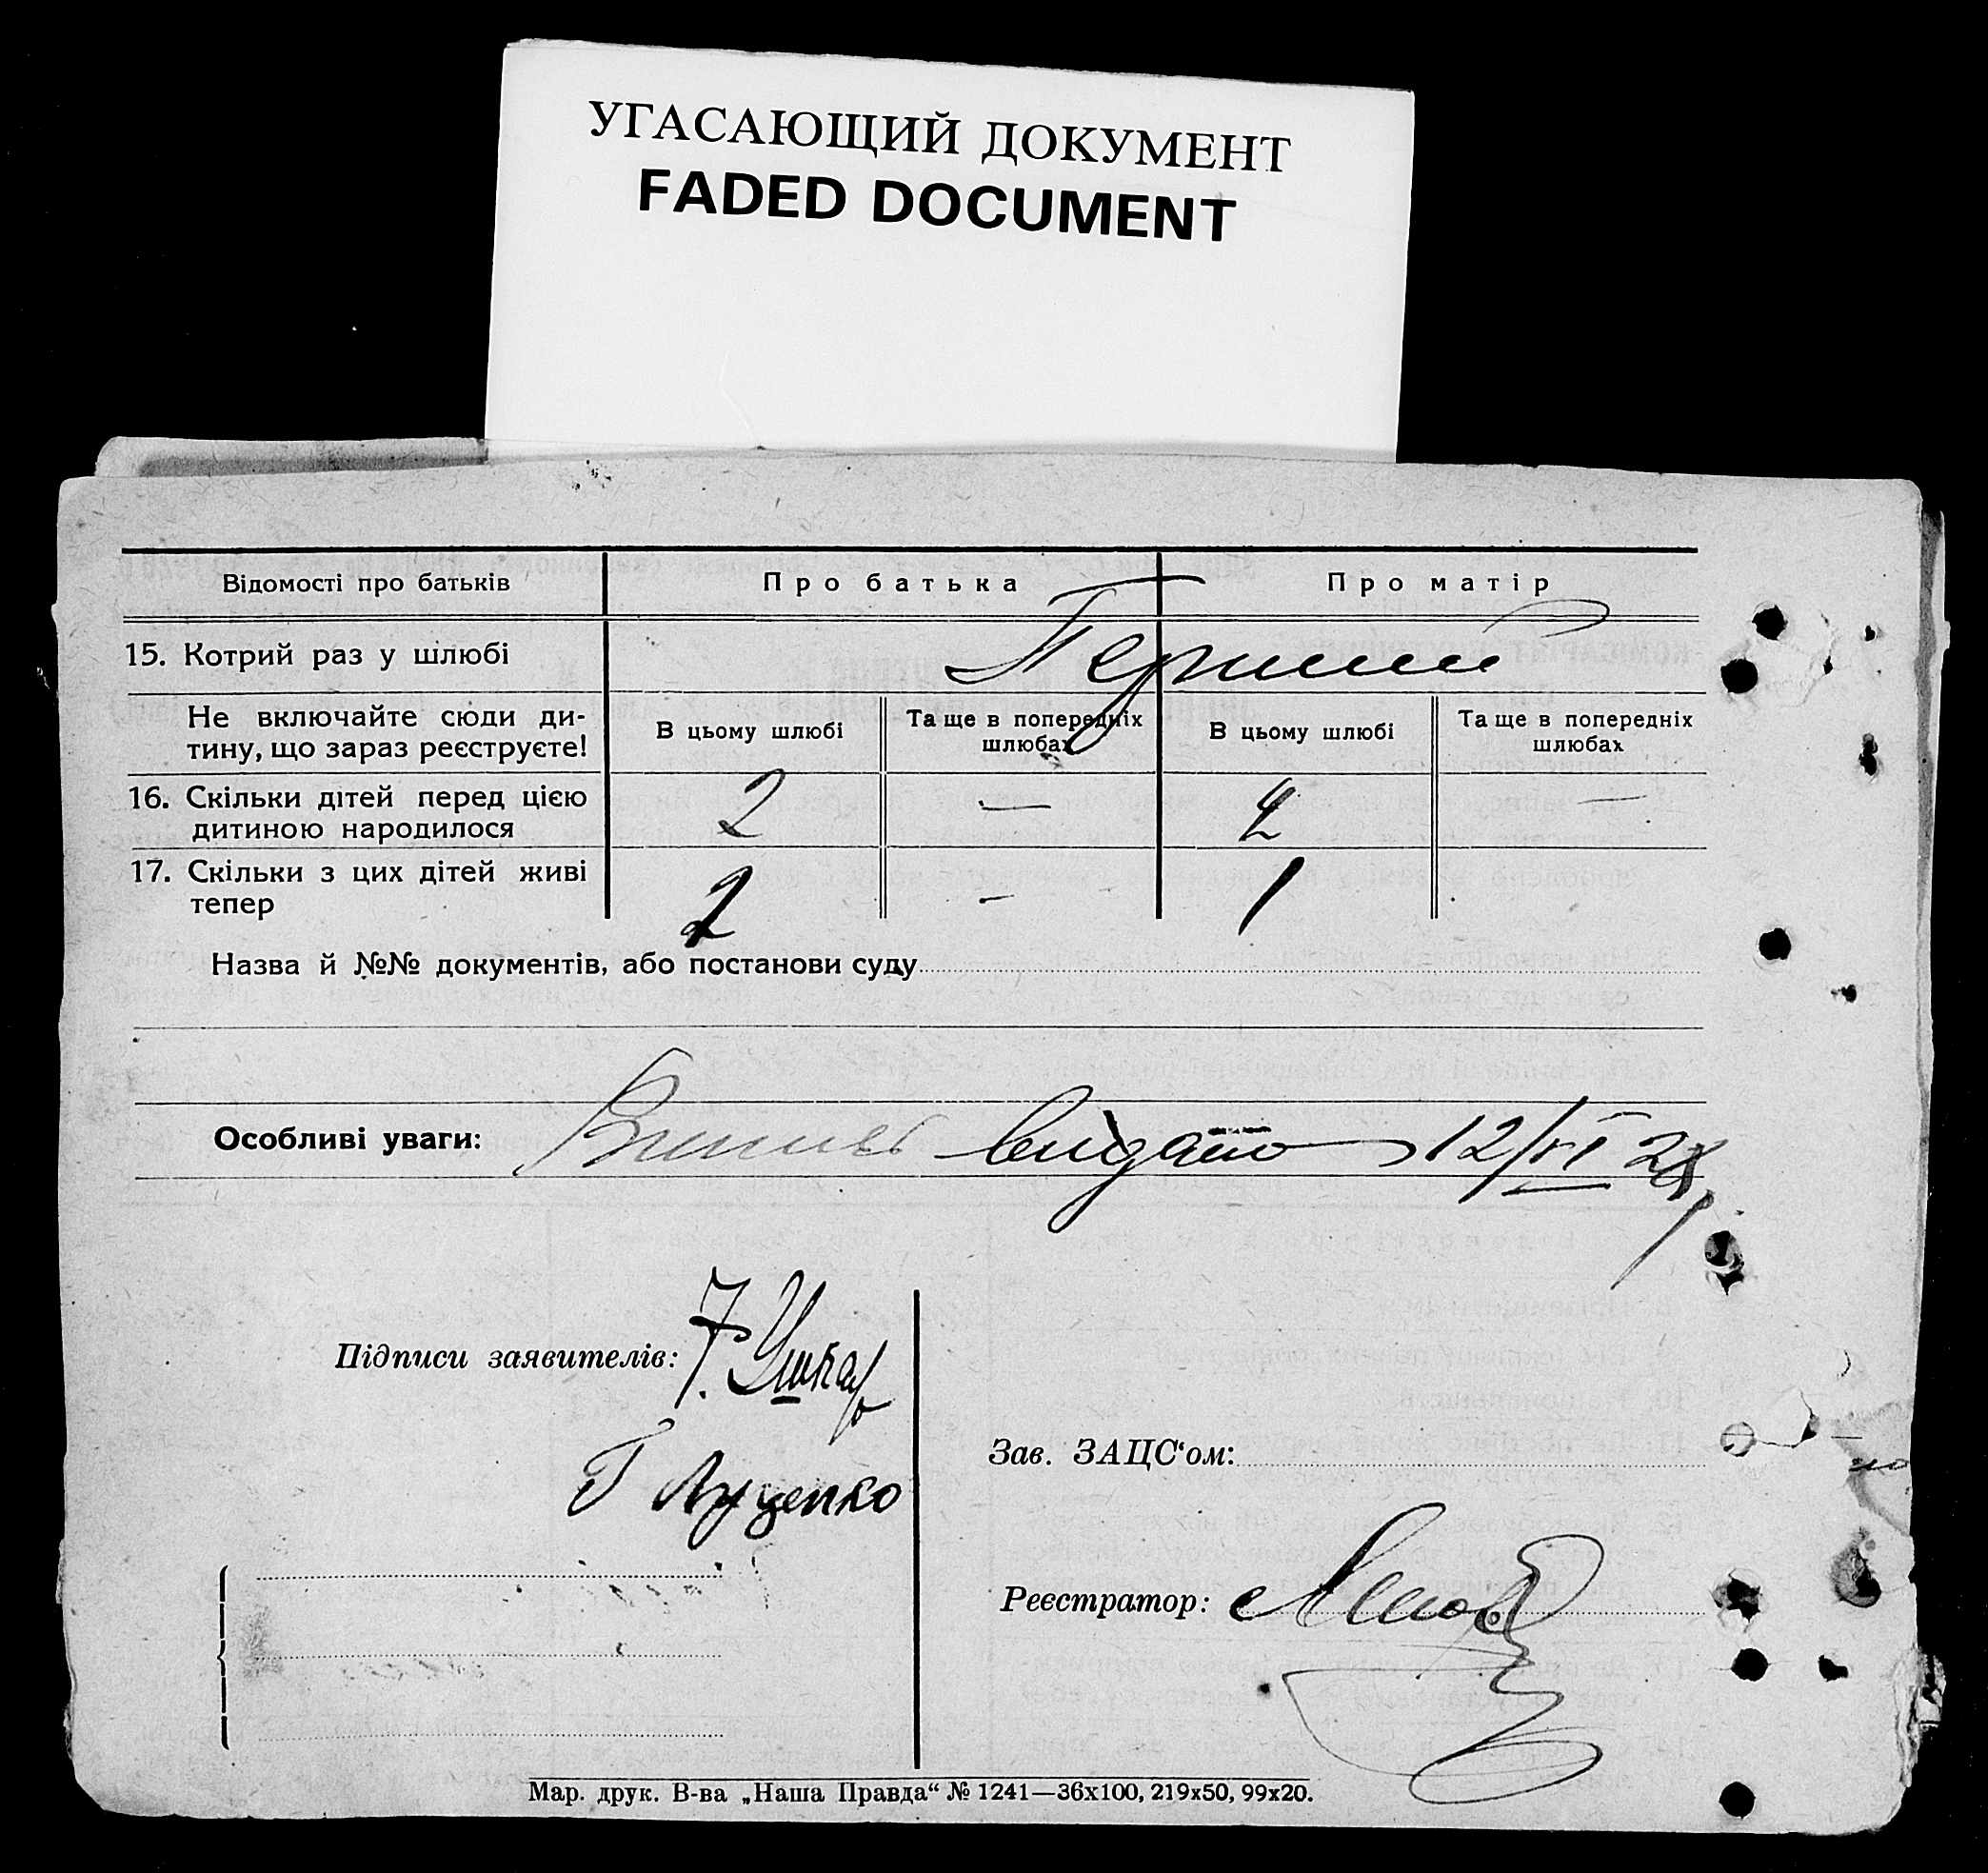 УГАСАЮЩИЙ ДОКУМЕНТ
FADED DOCUMENT
Відомості про батьків Про батька Про матір
15. Котрий раз у шлюбі Перший
Не включайте сюди ди-
тину, що зараз реєструєте!
В цьому шлюбі Та ще в попередніх шлюбах В цьому шлюбі Та ще в попередніх шлюбах
16. Скільки дітей перед цією
дитиною народилося 2 — 2 —
17. Скільки з цих дітей живі
тепер - 1
Назва й №№ документів, або постанови суду
Особливі уваги: видано 12/VI
Підписи заявителів:
Г Луценко
Зав. ЗАЦС‘ом:
Реєстратор:
Мар. друк. В-ва „Наша Правда“ № 1241—36х100, 219х50, 99х20.